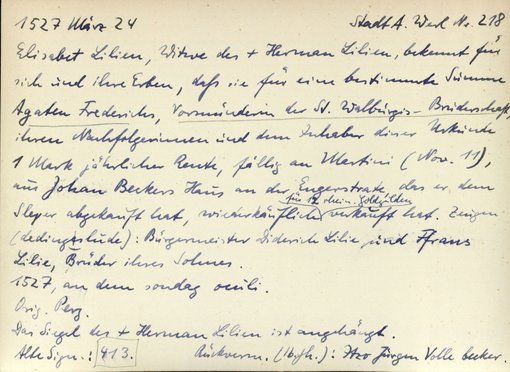 1527 März 24 Stadt A. Werl No. 218
Elisabet Lilien, Witwe des + Herman Lilien, bekennt für
sich und ihre Erben, daß sie für eine bestimmte Summe
Agaten Frederichs, Vormünderin der St. Walburgis-Bruderschaft,
ihren Nachfolgerinnen und dem Inhaber dieser Urkunde
1 Mark jährlicher Rente, fällig an Martini (Nov. 11),
aus Johan Beckers Haus an der Engerstrate, das er dem
für 12 rhein. Goldgulden
Sleper abgekauft hat, wiederkäuflich verkauft hat. Zeugen
(dedingslude): Bürgermeister Diderich Lilie und Frans
Lilie, Brüder ihres Sohnes.
1527, an dem sondag oculi.
Orig. Perg.
Das Siegel des + Herman Lilien ist angehängt.
Alte Sign.: 413. Rückverm. (16. Jh.): Jürgen Volle becker.